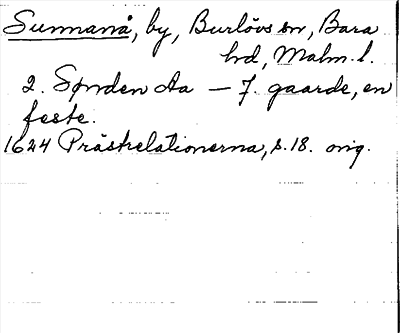 Sunnanå, by, Burlövs sn, Bara
hd, Malm. l.
2. Sønden Aa — 7. gaarde, en
feste.
1624 Prästrelationerna, s. 18. orig.